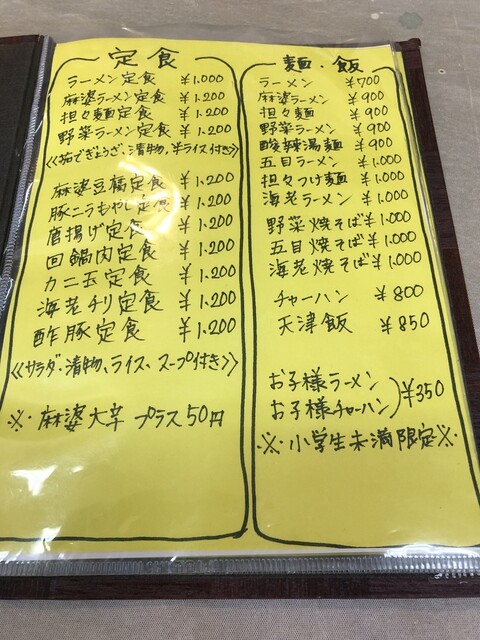 定食
ラーメン定食 ¥1.000
麻婆ラーメン定食 ¥1.200
担々麺定食 ¥1.200
野菜ラーメン定食 ¥1.200
《茹でぎょうざ、漬物、半ライス付き》
麻婆豆腐定食 ¥1.200
豚ニラもやし定食 ¥1.200
唐揚げ定食 ¥1.200
回鍋肉定食 ¥1.200
カニ玉定食 ¥1.200
海老チリ定食 ¥1.200
酢豚定食 ¥1.200
《サラダ、漬物、ライス、スープ付き》
※・麻婆大辛 プラス50円
麺・飯
ラーメン ¥700
麻婆ラーメン ¥900
担々麺 ¥900
野菜ラーメン ¥900
酸辣湯麺 ¥900
五目ラーメン ¥1.000
担々つけ麺 ¥1.000
海老ラーメン ¥1.000
野菜焼そば ¥1.000
五目焼そば ¥1.000
海老焼そば ¥1.000
チャーハン ¥800
天津飯 ¥850
お子様ラーメン
お子様チャーハン ) ¥350
※・小学生未満限定※・